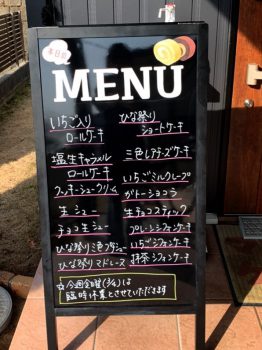 本日の
MENU
いちご入り
ロールケーキ
塩生キャラメル
ロールケーキ
クッキーシュークリーム
生シュー
チョコ生シュー
ひな祭り三色フラジュー
ひな祭りマドレーヌ
ひな祭り
ショートケーキ
三色レアチーズケーキ
いちごミルクレープ
ガトーショコラ
生チョコスティック
プレーンシフォンケーキ
いちごシフォンケーキ
抹茶シフォンケーキ
☆今週金曜(3/4)は
臨時休業とさせていただきます